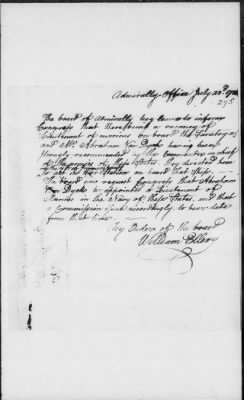 Admiralty Office July 23d 1780
275
The board of Admiralty beg leave to inform
Congress that there being a vacancy of
Lieutenant of marines on board the Saratoga
and Mr. Abraham Van Dyck having been
strongly recommended by the Commander in chief
of the armies of these States, they directed him
to act in that Station on board that Ship.
The board now request Congress that Abraham
Van Dyck be appointed a Lieutenant of
Marines in the Navy of these States, and that
a Commission issue accordingly to bear date
from that time
By Order of the board
William Ellery